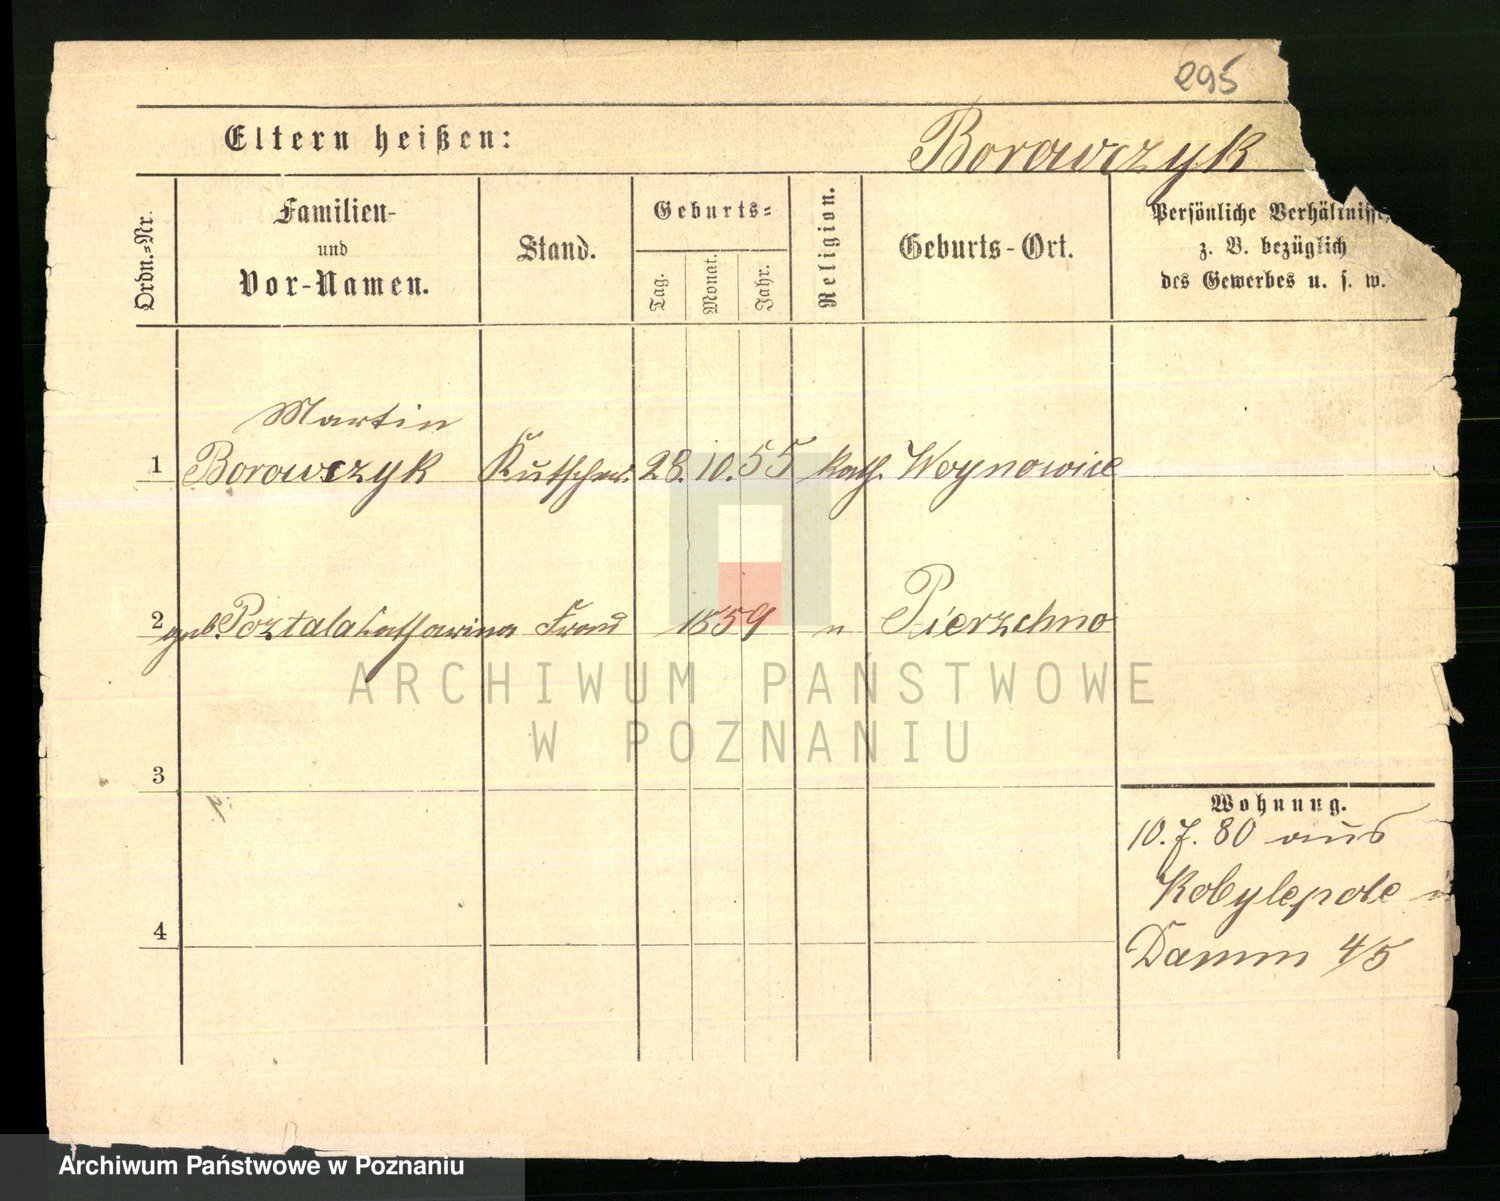 295
Eltern heißen: Borowczyk
Ordn.-Nr.
Familien-
und
Vor-Namen.
Stand.
Geburts-
Tag.
Monat.
Jahr.
Religion.
Geburts-Ort.
Persönliche Verhältnisse,
z. B. bezüglich
des Gewerbes u. s. w.
Martin
1 Borowczyk Kutscher 28. 10. 55 kath. Woynowice
2 geb. Poztala Catharina Frau 1859 " Pierzchno
3
4
Wohnung.
10. 7. 80 aus
Kobylepole
Damm 4/5
ARCHIWUM PAŃSTWOWE
W POZNANIU
Archiwum Państwowe w Poznaniu